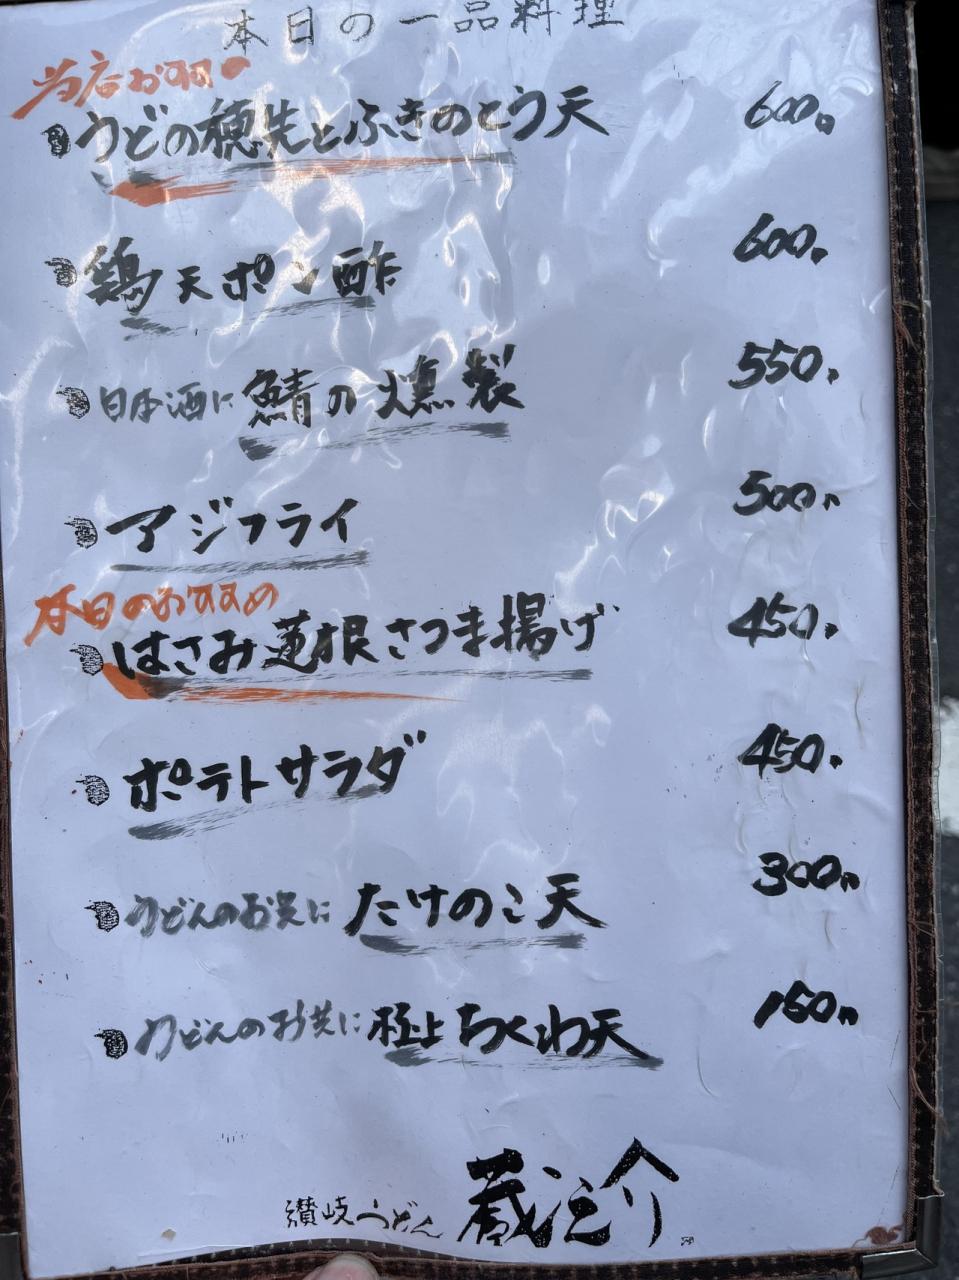 本日の一品料理
当店お勧め
うどの穂先とふきのとう天 600円
鶏天ポン酢 600円
日本酒に 鯖の燻製 550円
アジフライ 500円
本日のおすすめ
はさみ蓮根さつま揚げ 450円
ポテトサラダ 450円
うどんのお共に たけのこ天 300円
うどんのお共に 極上ちくわ天 150円
讃岐うどん 蔵之介